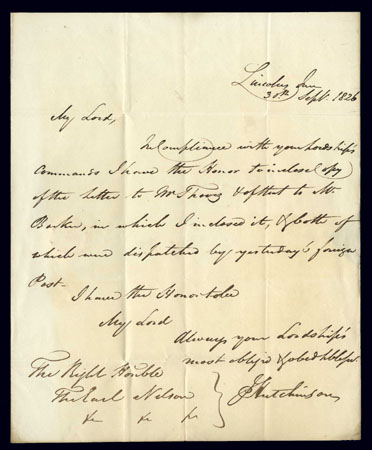 Lincolns Inn
30th Sept. 1826
My Lord,
In Compliance with your Lordship's
Commands I have the Honor to inclose Copy
of the Letter to Mr Thovez & of that to Mr
Barker, in which I inclosed it, & both of
which were dispatched by yesterday's foreign
Post.
I have the Honor to be
My Lord
Always your Lordship's
most obliged & obedt
The Right Honble
The Earl Nelson
&c &c &c
J Hutchinson